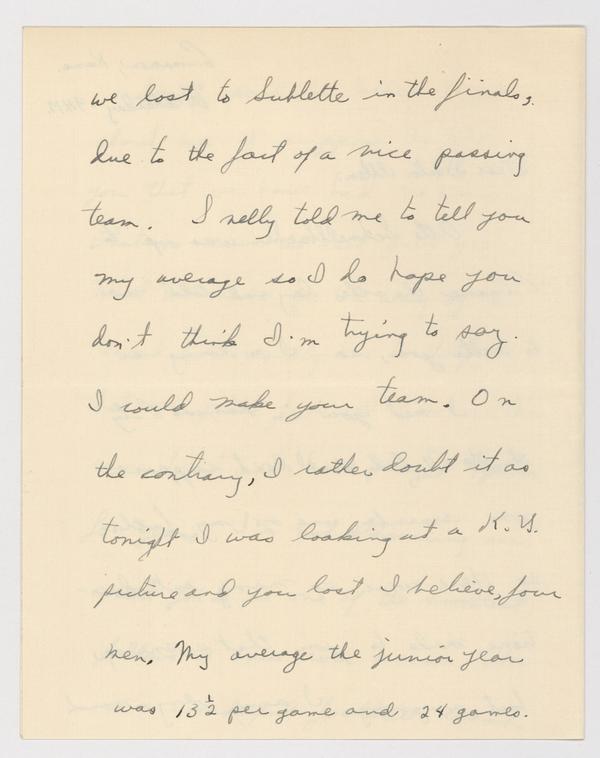 we lost to Sublette in the finals,
due to the fact of a nice passing
team. I told me to tell you
my average so I do hope you
don't think I'm trying to say.
I could make your team. On
the contrary, I rather doubt it as
tonight I was looking at a K.U.
picture and you lost I believe, four
men. My average the junior year
was 13½ per game and 24 games.